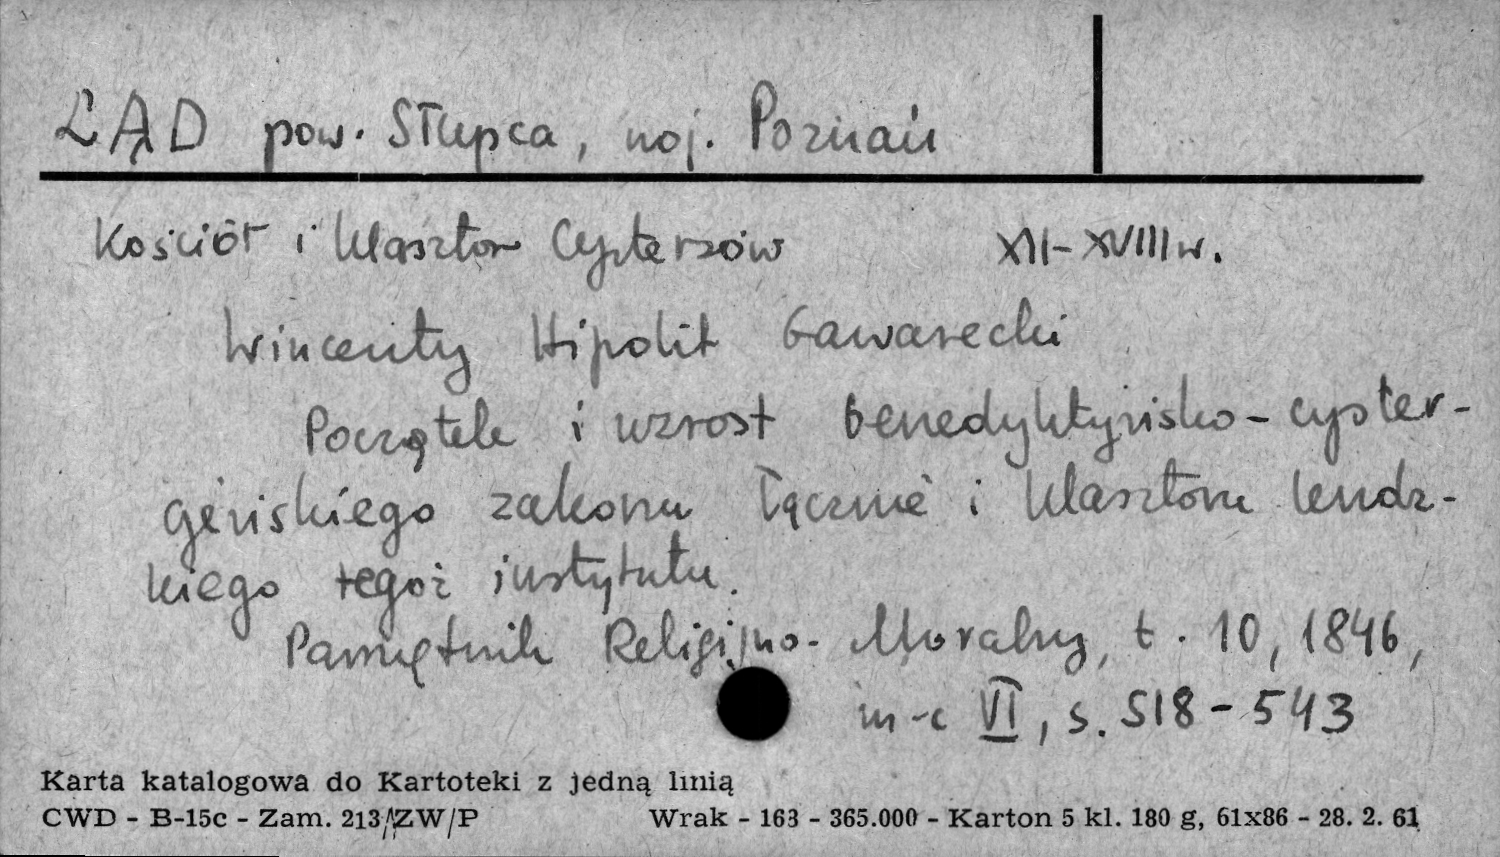 ŁĄD pow. Słupca, woj. Poznań
Kościół i klasztor Cystersów XII-XVIII w.
Wincenty Hipolit Gawarecki
Początek i wzrost benedyktyńsko-cyster-
geńskiego zakonu łącznie i klasztoru lendz-
kiego tegoż instytutu.
Pamiętnik Religijno-Moralny, t. 10, 1846,
m-c VI, s. 518-543
Karta katalogowa do Kartoteki z jedną linią
CWD - B-15c - Zam. 213/ZW/P Wrak - 163 - 365.000 - Karton 5 kl. 180 g, 61x86 - 28. 2. 61